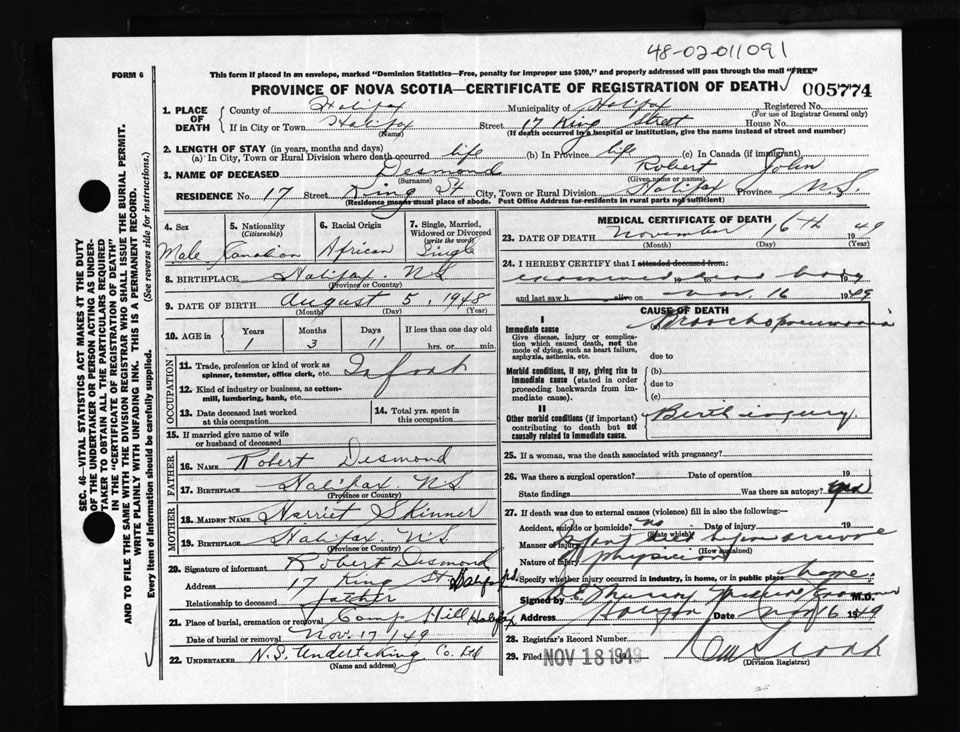 48-02-011091
FORM 6
This form if placed in an envelope, marked "Dominion Statistics—Free, penalty for improper use $300," and properly addressed will pass through the mail "FREE"
PROVINCE OF NOVA SCOTIA—CERTIFICATE OF REGISTRATION OF DEATH 005774
1. PLACE OF DEATH
County of Halifax Municipality of Halifax Registered No.
(For use of Registrar General only)
If in City or Town Halifax Street 17 King Street House No.
(Name) (If death occurred in a hospital or institution, give the name instead of street and number)
2. LENGTH OF STAY (in years, months and days)
(a) In City, Town or Rural Division where death occurred life (b) In Province life (c) In Canada (if immigrant)
3. NAME OF DECEASED Desmond Robert John
(Surname) (Given name or names)
RESIDENCE No. 17 Street King St City, Town or Rural Division Halifax Province N.S.
(Residence means usual place of abode. Post Office Address for residents in rural parts not sufficient)
4. Sex
Male
5. Nationality
(Citizenship)
Canadian
6. Racial Origin
African
7. Single, Married, Widowed or Divorced
(write the word)
Single
8. BIRTHPLACE Halifax N.S.
(Province or Country)
9. DATE OF BIRTH August 5, 1948
(Month) (Day) (Year)
10. AGE in Years Months Days If less than one day old
1 3 11 hrs. or min.
OCCUPATION
11. Trade, profession or kind of work as spinner, teamster, office clerk, etc. Infant
12. Kind of industry or business, as cotton-mill, lumbering, bank, etc.
13. Date deceased last worked at this occupation
14. Total yrs. spent in this occupation
15. If married give name of wife or husband of deceased
FATHER
16. NAME Robert Desmond
17. BIRTHPLACE Halifax N.S.
(Province or Country)
MOTHER
18. MAIDEN NAME Harriet Skinner
19. BIRTHPLACE Halifax N.S.
(Province or Country)
20. Signature of informant Robert Desmond
Address 17 King St Halifax N.S.
Relationship to deceased father
21. Place of burial, cremation or removal Camp Hill Halifax
Date of burial or removal Nov. 17/49
22. UNDERTAKER N.S. Undertaking Co. Ltd
(Name and address)
MEDICAL CERTIFICATE OF DEATH
23. DATE OF DEATH November 16th 49
(Month) (Day) (Year)
24. I HEREBY CERTIFY that I attended deceased from:
examined dead body
19 to 19
and last saw h alive on Nov. 16 1949
CAUSE OF DEATH
I
Immediate cause Bronchopneumonia
Give disease, injury or complication which caused death, not the mode of dying, such as heart failure, asphyxia, asthenia, etc.
due to
Morbid conditions, if any, giving rise to immediate cause (stated in order proceeding backwards from immediate cause).
(b)
due to
(c)
II
Other morbid conditions (if important) contributing to death but not causally related to immediate cause. Birth injury
25. If a woman, was the death associated with pregnancy?
26. Was there a surgical operation? Date of operation 19
State findings Was there an autopsy? yes
27. If death was due to external causes (violence) fill in also the following:—
Accident, suicide or homicide? no Date of injury 19
(State which)
Manner of injury Infant died before arrival
(How sustained)
Nature of injury of physician
Specify whether injury occurred in industry, in home, or in public place home
Signed by M.D.
Address Date Nov 16 1949
28. Registrar's Record Number
29. Filed NOV 18 1949 19
(Division Registrar)
SEC. 46—VITAL STATISTICS ACT MAKES IT THE DUTY
OF THE UNDERTAKER OR PERSON ACTING AS UNDER-
TAKER TO OBTAIN ALL THE PARTICULARS REQUIRED
IN THE "CERTIFICATE OF REGISTRATION OF DEATH"
AND TO FILE THE SAME WITH THE DIVISION REGISTRAR WHO SHALL ISSUE THE BURIAL PERMIT.
WRITE PLAINLY WITH UNFADING INK. THIS IS A PERMANENT RECORD.
Every item of information should be carefully supplied. (See reverse side for instructions.)